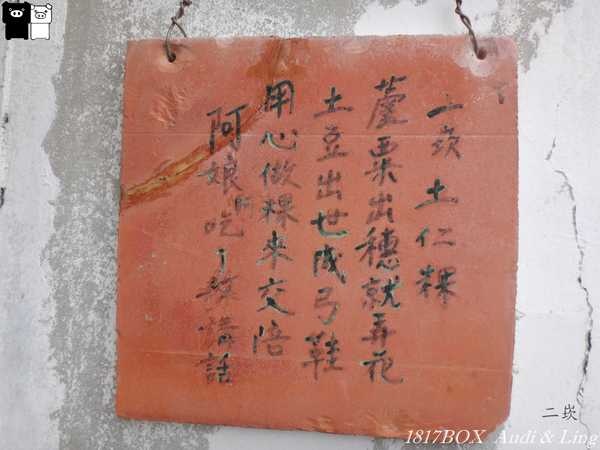 二崁土仁粿
蘆粟出穗就弄花
土豆出世成弓鞋
用心做粿來交陪
阿娘吃了講話
二崁
1817BOX Audi & Ling